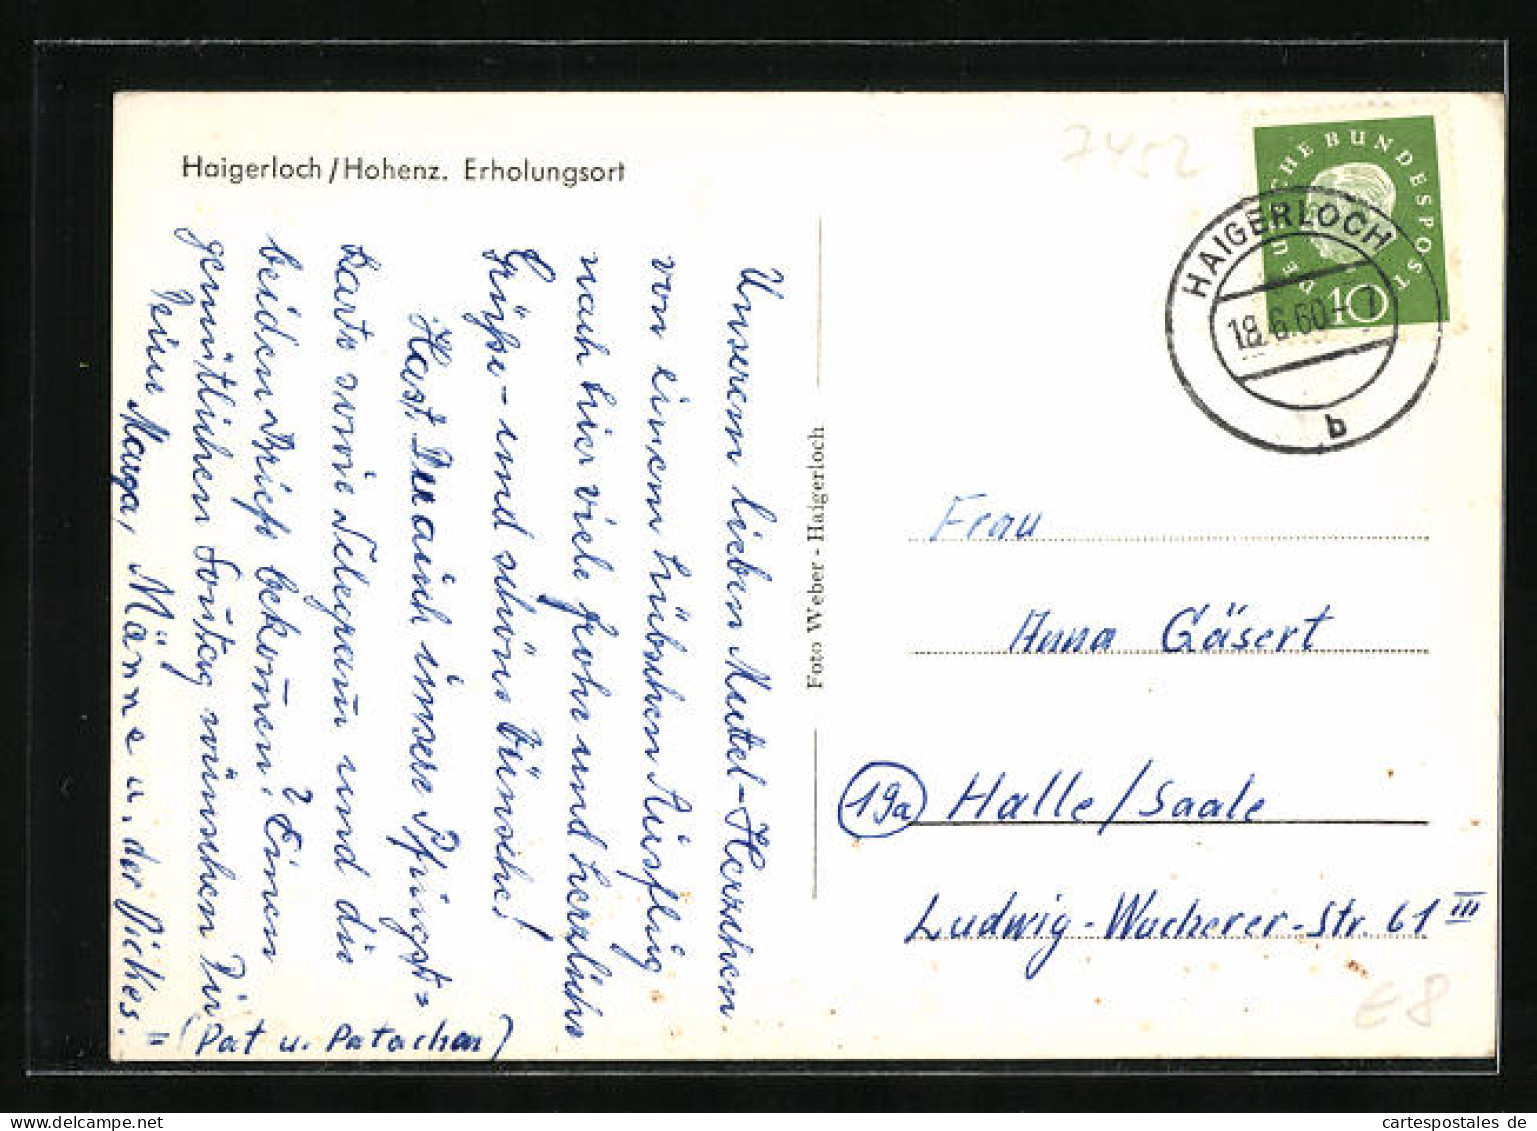 Haigerloch / Hohenz. Erholungsort
7452
DEUTSCHE BUNDESPOST
10
HAIGERLOCH
18.6.60-7
b
Unserem lieben Muttel-Herzchen
von einem hübschen Ausflug
nach hier viele frohe und herzliche
Grüße - und schöne Wünsche!
Hast Du auch unsere Pfingst=
karte sowie Telegram̄ und die
beiden Briefe bekom̄en? Einen
gemütlichen Son̄tag wünschen Dir
Deine Manga, Männe u. der Dickes.
= (Pat u. Patachon)
Foto Weber - Haigerloch
Frau
Anna Gäsert
19a Halle/Saale
Ludwig-Wucherer-Str. 61 III
E8
cartespostales de
www.delcampe.net